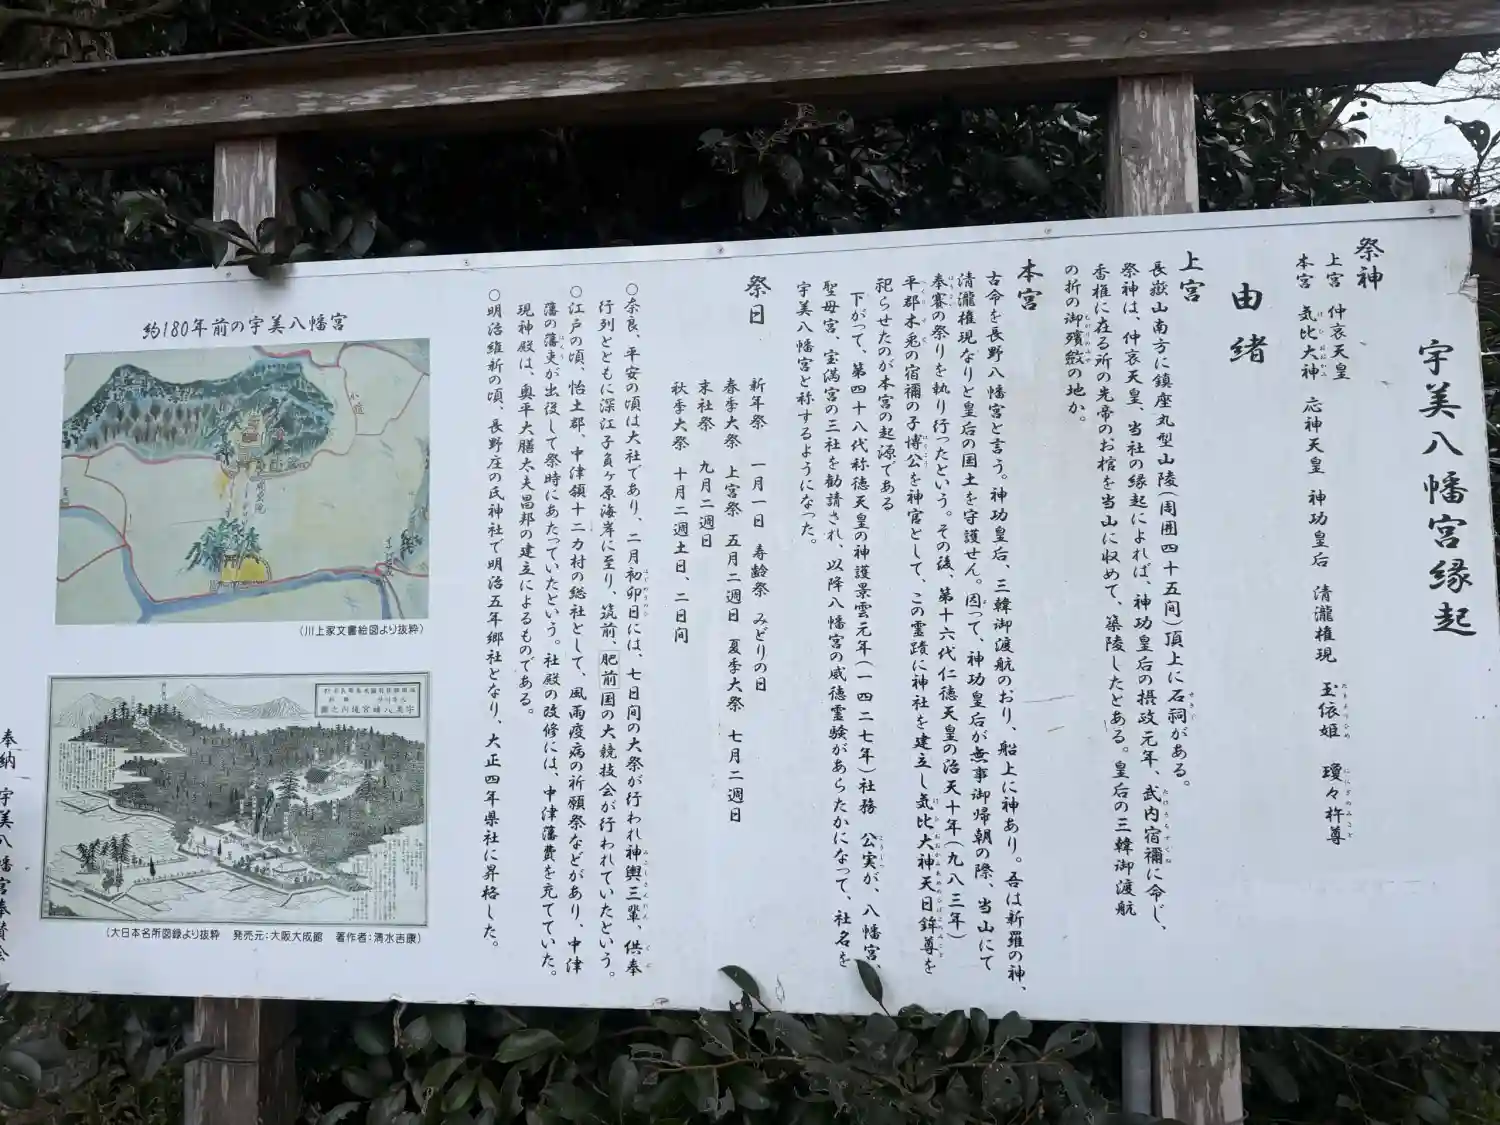 宇美八幡宮縁起
祭神
上宮 仲哀天皇
本宮 気比大神 応神天皇 神功皇后 清瀧権現 玉依姫 瓊々杵尊
由緒
上宮
長嶽山南方に鎮座丸型山陵(周囲四十五間)頂上に石祠がある。
祭神は、仲哀天皇、当社の縁起によれば、神功皇后の摂政元年、武内宿禰に命じ、
香椎に在る所の先帝のお棺を当山に収めて、築陵したとある。皇后の三韓御渡航
の折の御殯斂の地か。
本宮
古命を長野八幡宮と言う。神功皇后、三韓御渡航のおり、船上に神あり。吾は新羅の神、
清瀧権現なりと皇后の国土を守護せん。因って、神功皇后が無事御帰朝の際、当山にて
奉賽の祭りを執り行ったという。その後、第十六代仁徳天皇の治天十年(九八三年)
平郡木兎の宿禰の子博公を神官として、この霊蹟に神社を建立し気比大神天日鉾尊を
祀らせたのが本宮の起源である
下がって、第四十八代称徳天皇の神護景雲元年(一四二七年)社務 公実が、八幡宮、
聖母宮、宝満宮の三社を勧請され、以降八幡宮の威徳霊験があらたかになって、社名を
宇美八幡宮と称するようになった。
祭日
新年祭 一月一日 寿齢祭 みどりの日
春季大祭 上宮祭 五月二週日 夏季大祭 七月二週日
末社祭 九月二週日
秋季大祭 十月二週土日、二日間
○奈良、平安の頃は大社であり、二月初卯日には、七日間の大祭が行われ神輿三輩、供奉
行列とともに深江子負ヶ原海岸に至り、筑前、肥前国の大競技会が行われていたという。
○江戸の頃、怡土郡、中津領十二カ村の総社として、風雨疫病の祈願祭などがあり、中津
藩の藩吏が出役して祭時にあたっていたという。社殿の改修には、中津藩費を充てていた。
現神殿は、奥平大膳太夫昌邦の建立によるものである。
○明治維新の頃、長野庄の氏神社で明治五年郷社となり、大正四年県社に昇格した。
約180年前の宇美八幡宮
(川上家文書絵図より抜粋)
宇美八幡宮境内之図
(大日本名所図録より抜粋 発売元:大阪大成館 著作者:清水吉康)
奉納 宇美八幡宮奉賛会